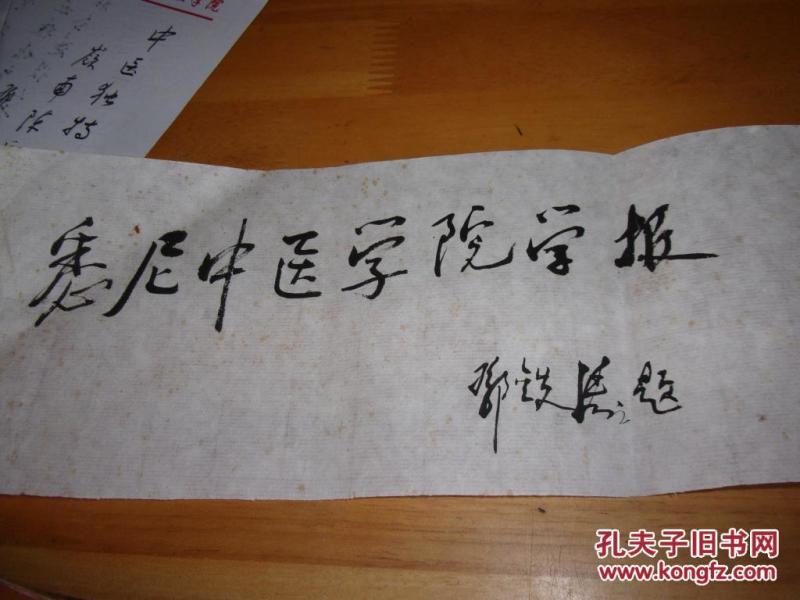 中医独特
岭南陈
悉尼中医学院学报
邓铁涛题
孔夫子旧书网
www.kongfz.com